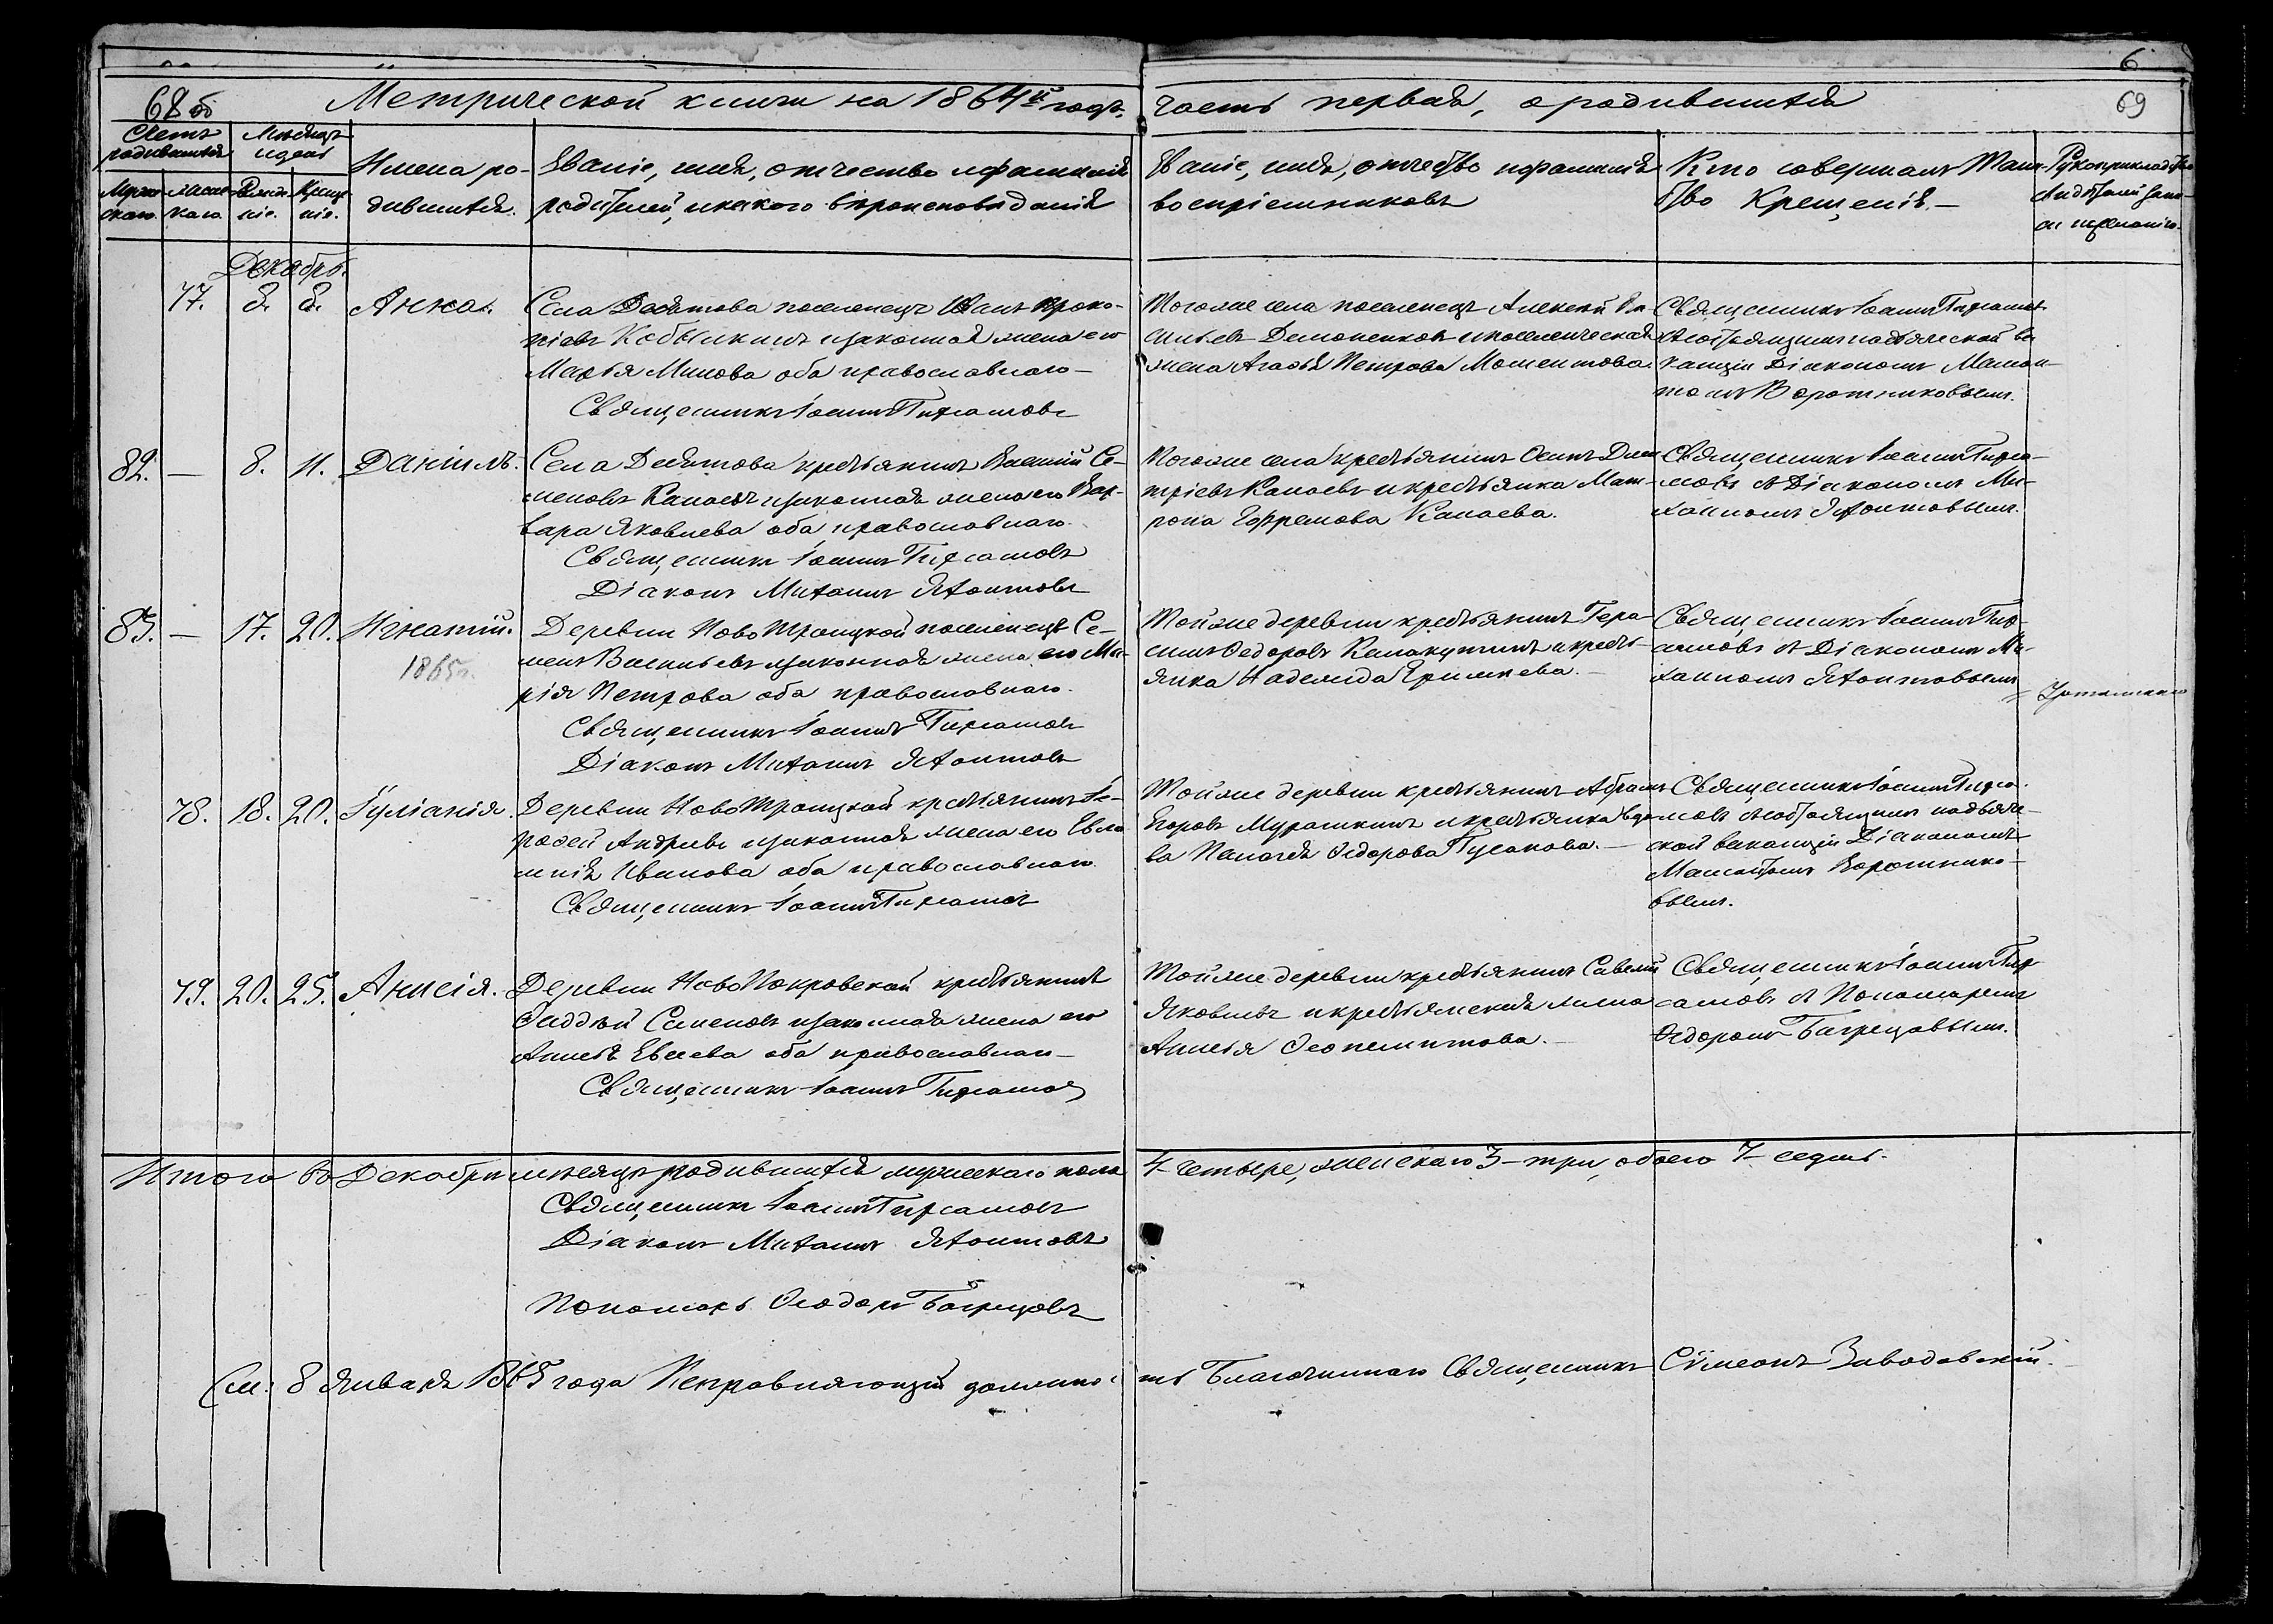 6
68 об
Метрической книги на 1864й годъ. часть первая, о родившихся
69
Счетъ родившихся
Мѣсяцъ и день
Имена родившихся.
Званіе, имя, отчество и фамилія
родителей, и какого вѣроисповѣданія
Званіе, имя, отчество и фамилія
воспріемниковъ
Кто совершалъ Таин-
ство Крещенія.-
Рукоприкладство
свидѣтелей запи-
си по желанію.
Муже-
скаго.
Женс-
каго.
Рожде-
ніе.
Креще-
ніе.
Декабрь.
77. 8. 8. Анна.
Села Десятова поселенецъ Иванъ Проко-
піевъ Кобылкинъ и законная жена его
Марья Минова оба православнаго-
Священникъ Іоаннъ Тирсановъ
Тогоже села поселенецъ Алексей Ва-
сильевъ Демоненковъ и поселенческая
жена Агафья Петрова Моментова.
Священникъ Іоаннъ Тирсановъ
съ состоящимъ на дьяческой ва-
кансіи Діакономъ Мамон-
томъ Воротниковымъ.
82. - 8. 11. Даніилъ.
Села Десятова крестьянинъ Василій Се-
меновъ Канаевъ и законная жена его Вар-
вара Яковлева оба православнаго.
Священникъ Іоаннъ Тирсановъ
Діаконъ Михаилъ Яхонтовъ
Тогоже села крестьянинъ Осипъ Дми-
тріевъ Канаевъ и крестьянка Мат-
рона Ефремова Канаева.
Священникъ Іоаннъ Тирса-
новъ съ Діакономъ Ми-
хаиломъ Яхонтовымъ.
83. - 17. 20. Игнатій.
1865г.
Деревни НовоТроицкой поселенецъ Се-
менъ Васильевъ и законная жена его Ма-
рія Петрова оба православнаго.
Священникъ Іоаннъ Тирсановъ
Діаконъ Михаилъ Яхонтовъ
Тойже деревни крестьянинъ Гера-
симъ Федоровъ и кресть-
янка Надежда .-
Священникъ Іоаннъ Тир-
сановъ съ Діакономъ Ми-
хаиломъ Яхонтовымъ
78. 18. 20. Іуліанія.
Деревни НовоТроицкой крестьянинъ Ѳе-
досей Андреевъ и законная жена его Евла-
мпія Иванова оба православнаго
Священникъ Іоаннъ Тирсановъ
Тойже деревни крестьянинъ Абрамъ
Егоровъ Мурашкинъ и крестьянка вдо-
ва Пелагея Федорова Гусакова.-
Священникъ Іоаннъ Тирса-
новъ съ состоящимъ на дьяче-
ской вакансіи Діакономъ
Мамонтомъ Воротнико-
вымъ.
79. 20. 25. Анисія.
Деревни НовоПокровской крестьянинъ
Фаддѣй Семеновъ и законная жена его
Анисія Евсеева оба православнаго-
Священникъ Іоаннъ Тирсановъ
Тойже деревни крестьянинъ Савелій
Яковлевъ и крестьянская жена
Анисья Феопемптова.-
Священникъ Іоаннъ Тир-
сановъ съ Пономаремъ
Федоромъ Багрецовымъ.
Итого въ Декабрѣ мѣсяцѣ родившихся мужескаго пола 4-четыре, женскаго 3-три, обоего 7-седмь.
Священникъ Іоаннъ Тирсановъ
Діаконъ Михаилъ Яхонтовъ
Пономарь Ѳеодоръ Багрецовъ
См: 8 Января 1865 года Исправляющій должность Благочиннаго Священникъ Сѵмеонъ Заводовскій.